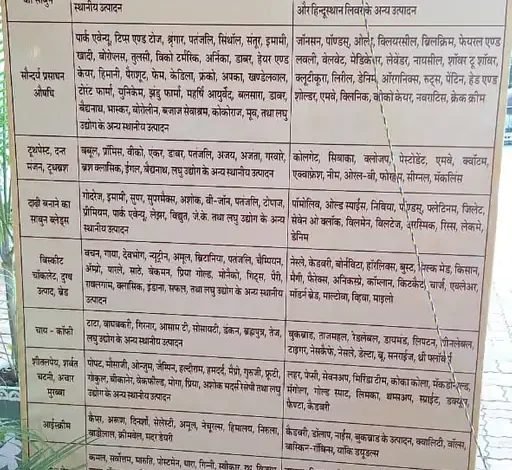 स्थानीय उत्पादन
और हिन्दूस्थान लिवर के अन्य उत्पादन
सौन्दर्य प्रसाधन
औषधि
पार्क एवेन्यू, टिप्स एण्ड टोज, श्रृंगार, पतंजलि, सिंथॉल, संतूर, इमामी,
खादी, बोरोप्लस, तुलसी, विको टर्मरिक, अर्निका, डाबर, हेयर एण्ड
केयर, हिमानी, पैराशूट, फेम, केडिला, फ्रंको, अपका, खण्डेलवाल,
टोरेंट फार्मा, युनिकेम, झंडु फार्मा, महर्षि आयुर्वेद, बलसारा, डाबर,
बैद्यनाथ, भास्कर, बोरोलीन, बजाज सेवाश्रम, कोकोराज, मूव, तथा लघु
उद्योग के अन्य स्थानीय उत्पादन
जॉनसन, पॉण्ड्स, क्लियरसील, ब्रिलक्रिम, फेयरल एण्ड
लवली, वेलवेट, मेडिकेयर, लेवेंडर, नायसील, शॉवर टू शॉवर,
क्यूटीकूरा, लिरील, डेनिम, ऑरगनिक्स, रूट्स, पेंटिन, हेड एण्ड
शोल्डर, एमवे, क्लिनिक, कोको केयर, नवराटिस, क्रेक क्रीम
टूथपेस्ट, दन्त
मंजन, टूथब्रश
बबूल, प्रॉमिस, वीको, एंकर, डाबर, पतंजलि, अजय, अजंता, गरवारे,
ब्रश क्लासिक, ईगल, बैद्यनाथ, लघु उद्योग के अन्य स्थानीय उत्पादन
कोलगेट, सिबाका, क्लोजप, पेप्सोडेंट, एमवे, क्वांटम,
एक्वाफ्रेश, नीम, ओरल-बी, फोरहंस, सीग्नल, मॅकलिंस
दाढ़ी बनाने का
साबुन ब्लेड्स
गोदरेज, इमामी, सुपर, सुपरमैक्स, अशोक, वी-जॉन, पतंजलि, टोपाज,
प्रीमियम, पार्क एवेन्यू, लेझर, विद्युत, जे.के. तथा लघु उद्योग के अन्य
स्थानीय उत्पादन
पॉमोलिव, ओल्ड स्पाईस, निविया, पॉण्ड्स, प्लेटिनम, जिलेट,
सेवेन ओ क्लॉक, विलमेन, विलटेज, इरास्मिक, रिस्स, लेकमे,
डेनिम
बिस्कीट
चॉकलेट, दुग्ध
उत्पाद, ब्रेड
बचन, गाया, देवभोग, न्यूट्रीन, अमूल, ब्रिटानिया, पतंजलि, चैम्पियन,
अॅम्प्रो, पारले, साठे, बेकमन, प्रिया गोल्ड, मोनॅको, गिट्स, पॅरी,
रावलगाम, क्लासिक, इंडाना, सफल, तथा लघु उद्योग के अन्य स्थानीय
उत्पादन
नेस्ले, कैडबरी, बोर्नविटा, हॉरलिक्स, बुस्ट, मिल्क मेड, किसान,
मैगी, फैरेक्स, अनिकस्प्रे, कॉम्प्लान, किटकैट, चार्ज, एक्लेअर,
मॉडर्न ब्रेड, माल्टोवा, व्हिवा, माइलो
चाय - कॉफी
टाटा, वाघबकरी, गिरनार, आसाम टी, सोसायटी, डंकन, ब्रह्मपुत्र, तेज,
लघु उद्योग के अन्य स्थानीय उत्पादन
ब्रुकब्राड, ताजमहल, रेडलेबल, डायमंड, लिपटन, ग्रीनलेबल,
टाइगर, नेसकैफे, नेसले, डेल्टा, ब्रू, सनराईज, थ्री फ्लॉवर्स
शीतलपेय, शर्बत
चटनी, अचार
मुरब्बा
पोपट, मौसाजी, ओन्जुम, जैम्पिन, हल्दीराम, हमदर्द, मॅप्रो, गुरुजी, फ्रूटी,
गोकुल, बीकानेर, वेकफील्ड, मोगा, प्रिया, अशोक मदर्स रेसेपी तथा लघु
उद्योग के अन्य स्थानीय उत्पादन
लहर, पेप्सी, सेवनअप, मिरिंडा टीम, कोका कोला, मॅकडोनल्ड,
मंगोला, गोल्ड स्पाट, लिमका, थम्सअप, स्प्राईट, डक्यूप,
फैण्टा, कैडबरी
आईस्क्रीम
कैंपा, अरूण, दिनशॉ, सेलेस्टी, अमूल, नेचूरल्स, हिमालय, निरूला,
वाडीलाल, क्रीमबेल, मदर डेयरी
कैडबरी, डॉलाप, नाईस, ब्रुकब्राड के उत्पादन, क्वालिटी, वॉल्स,
बास्किन-रॉबिन्स, यांकि डयूडल्स
कमल, सर्वोत्तम, मारुति, पोस्टमेन, धारा, गिन्नी,